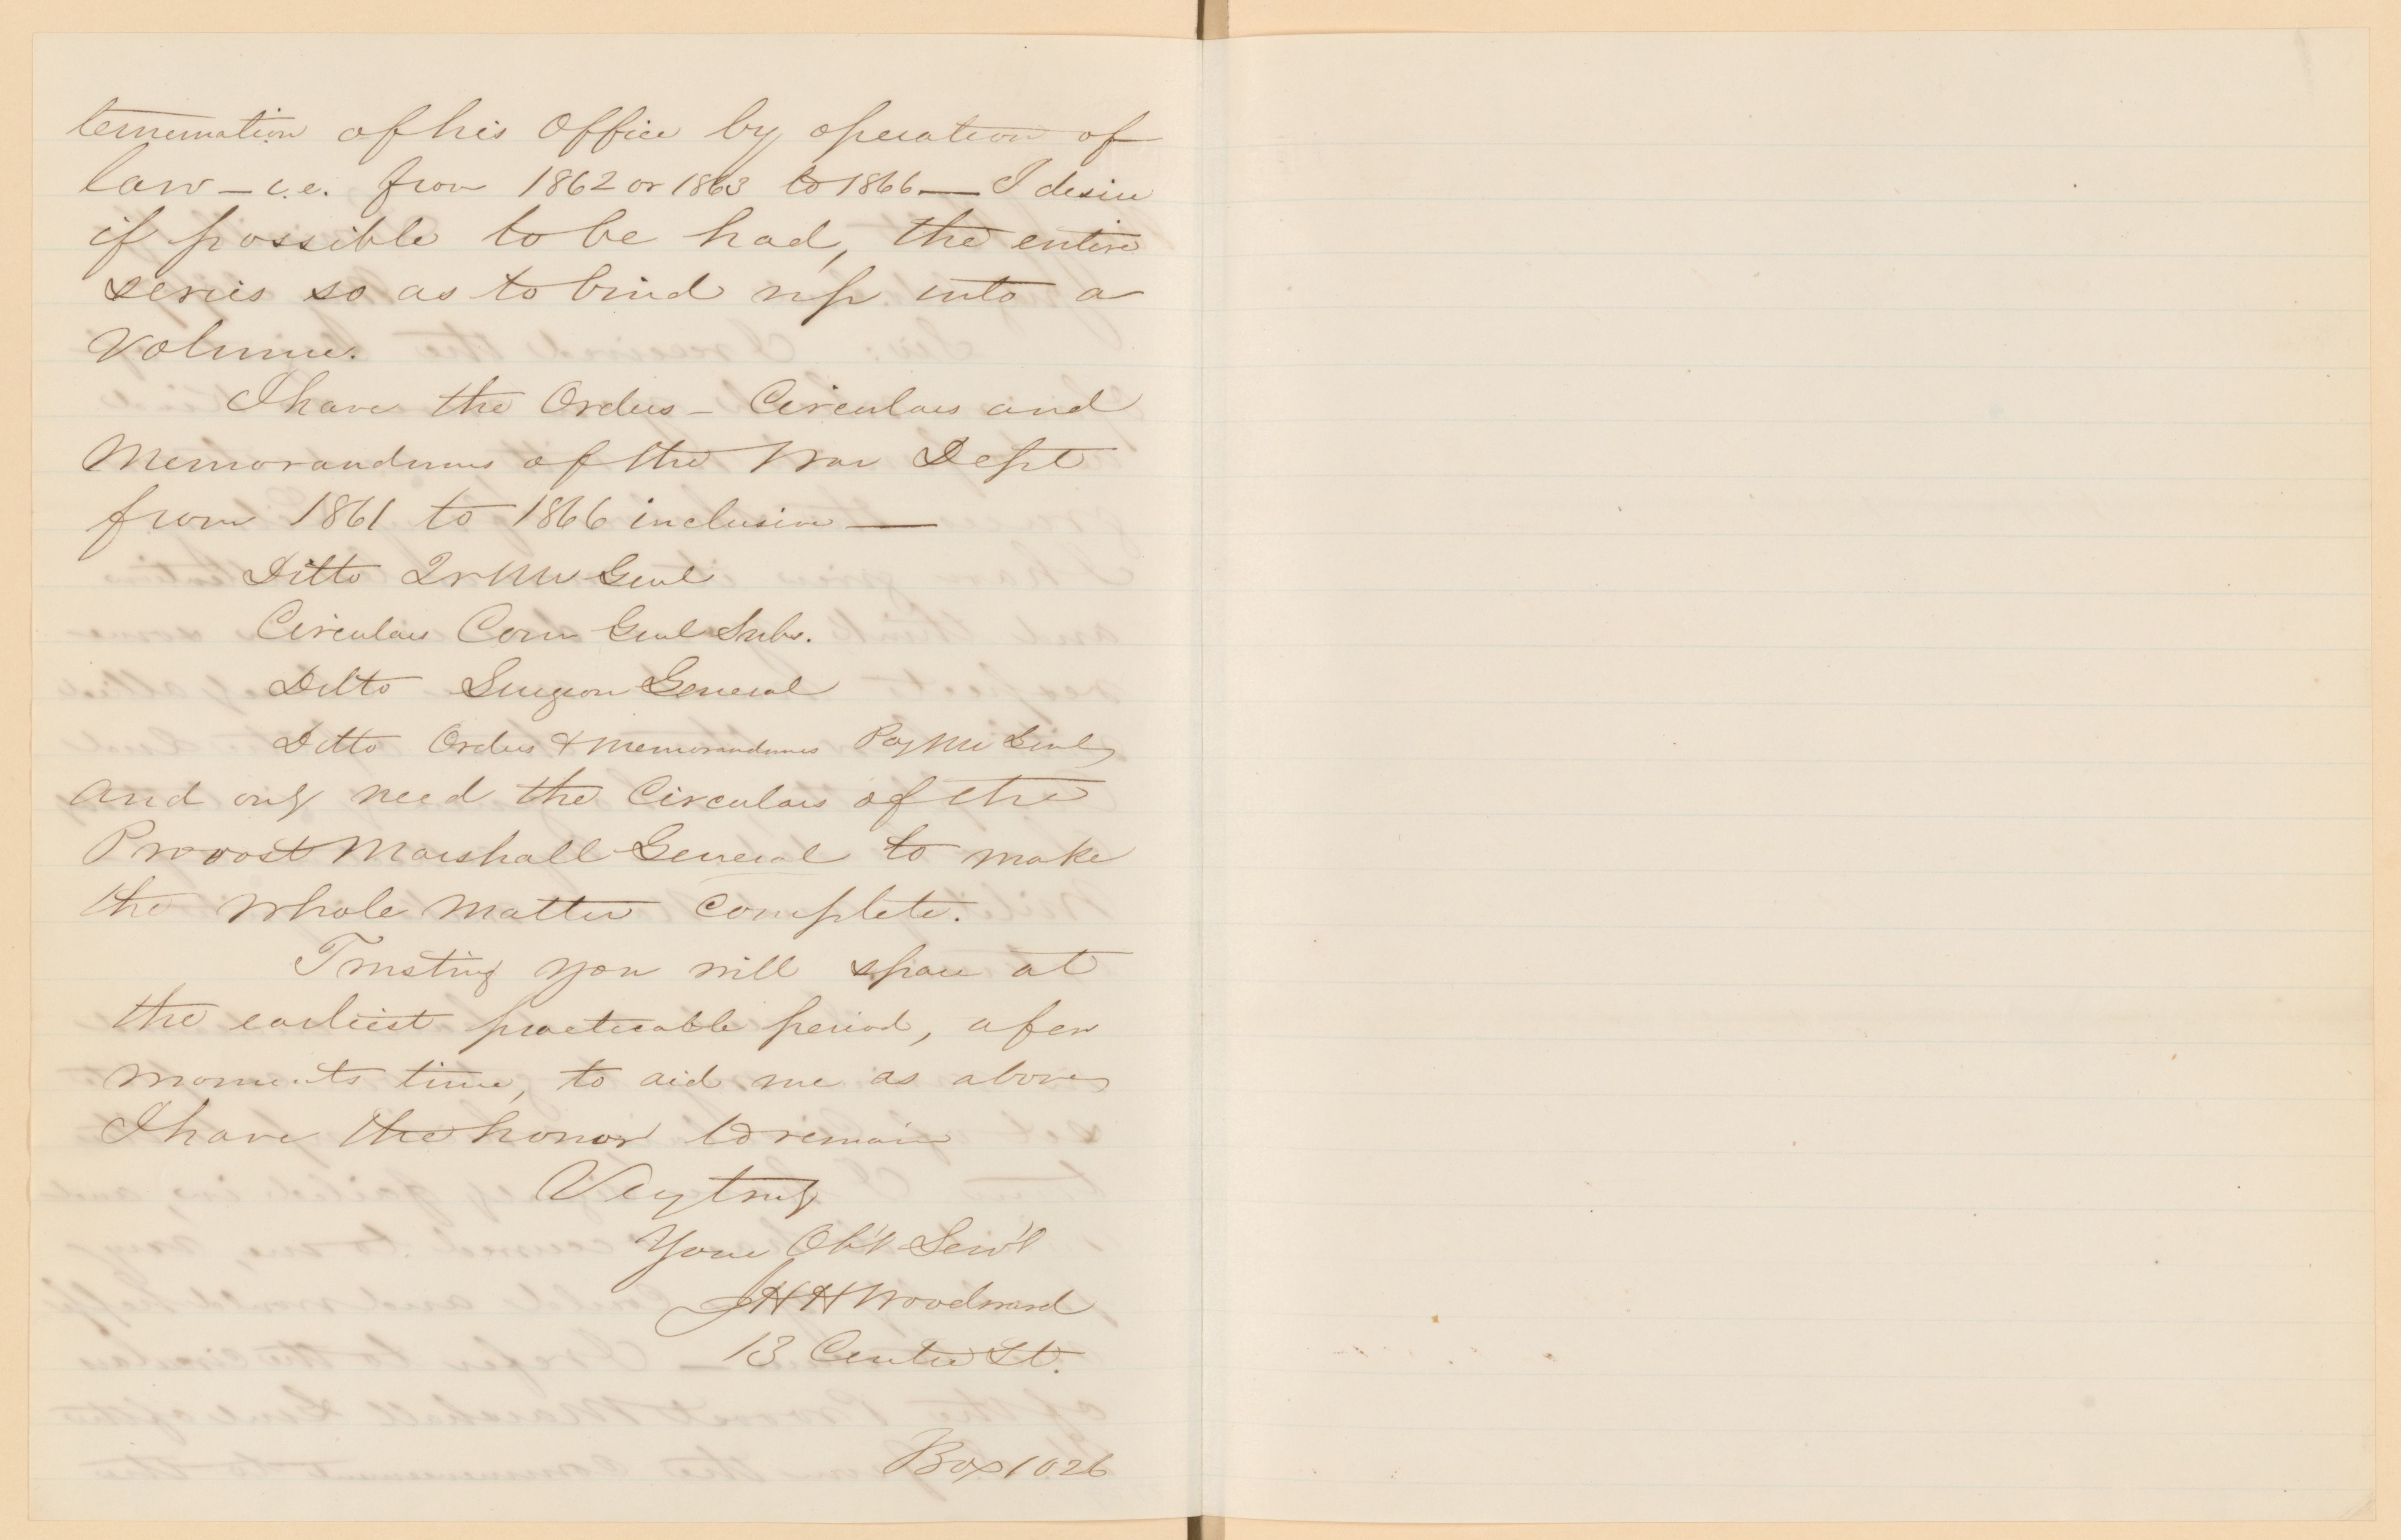 termination of his Office by operation of
law – i.e. from 1862 or 1863 to 1866 — I desire
if possible to be had, the entire
series so as to bind up into a
volume.
I have the Orders – Circulars and
Memorandums of the War Dept
from 1861 to 1866 inclusive —
Ditto Qr Mr Genl
Circulars Com Genl Subs.
Ditto Surgeon General
Ditto Orders & Memorandums Pay Mr Genl,
and only need the Circulars of the
Provost Marshall General to make
the whole matter complete.
Trusting you will spare at
the earliest practicable period, a few
moments time, to aid me as above,
I have the honor to remain
Very truly
Your Ob't Serv't
J H H Woodward
13 Centre St.
Box 1026